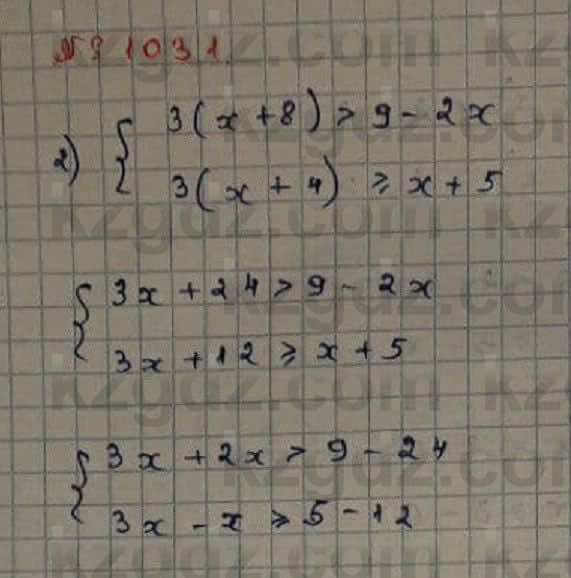 № 1031.
2) { 3(x+8) > 9 - 2x
3(x + 4) ⩾ x + 5
{ 3x + 24 > 9 - 2x
3x + 12 ⩾ x + 5
{ 3x + 2x > 9 - 24
3x - x ⩾ 5 - 12